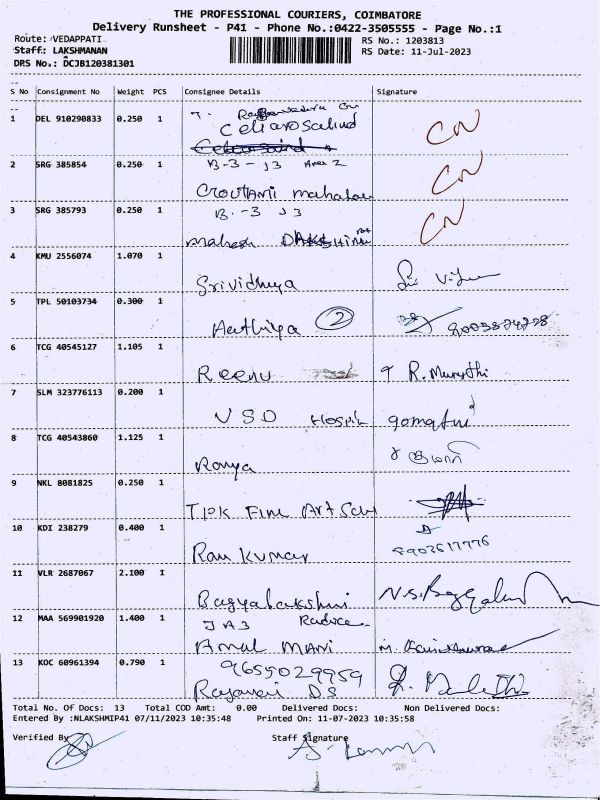 THE PROFESSIONAL COURIERS, COIMBATORE
Delivery Runsheet - P41 - Phone No.:0422-3505555 - Page No.:1
Route: VEDAPPATI RS No.: 1203813
Staff: LAKSHMANAN RS Date: 11-Jul-2023
DRS No.: DCJB120381301
S No Consignment No Weight PCS Consignee Details Signature
1 DEL 910290833 0.250 1
2 SRG 385854 0.250 1 B-3-J3
mahalax
3 SRG 385793 0.250 1 B-3 J3
mahesh
4 KMU 2556074 1.070 1
Srividhya
5 TPL 50103734 0.300 1
Aathiya 2
6 TCG 40545127 1.105 1
Reenu R. Murythi
7 SLM 323776113 0.200 1
VSD Hospit gomathi
8 TCG 40543860 1.125 1
Ramya குமார்
9 NKL 8081825 0.250 1
Fine Art
10 KDI 238279 0.400 1
Ram Kumar
11 VLR 2687067 2.100 1
Bagyalakshmi N.S.
12 MAA 569901920 1.400 1 JA3
Amul Mani
13 KOC 60961394 0.790 1 9655029959
DS
Total No. Of Docs: 13 Total COD Amt: 0.00 Delivered Docs: Non Delivered Docs:
Entered By :NLAKSHMIP41 07/11/2023 10:35:48 Printed On: 11-07-2023 10:35:58
Verified By Staff Signature